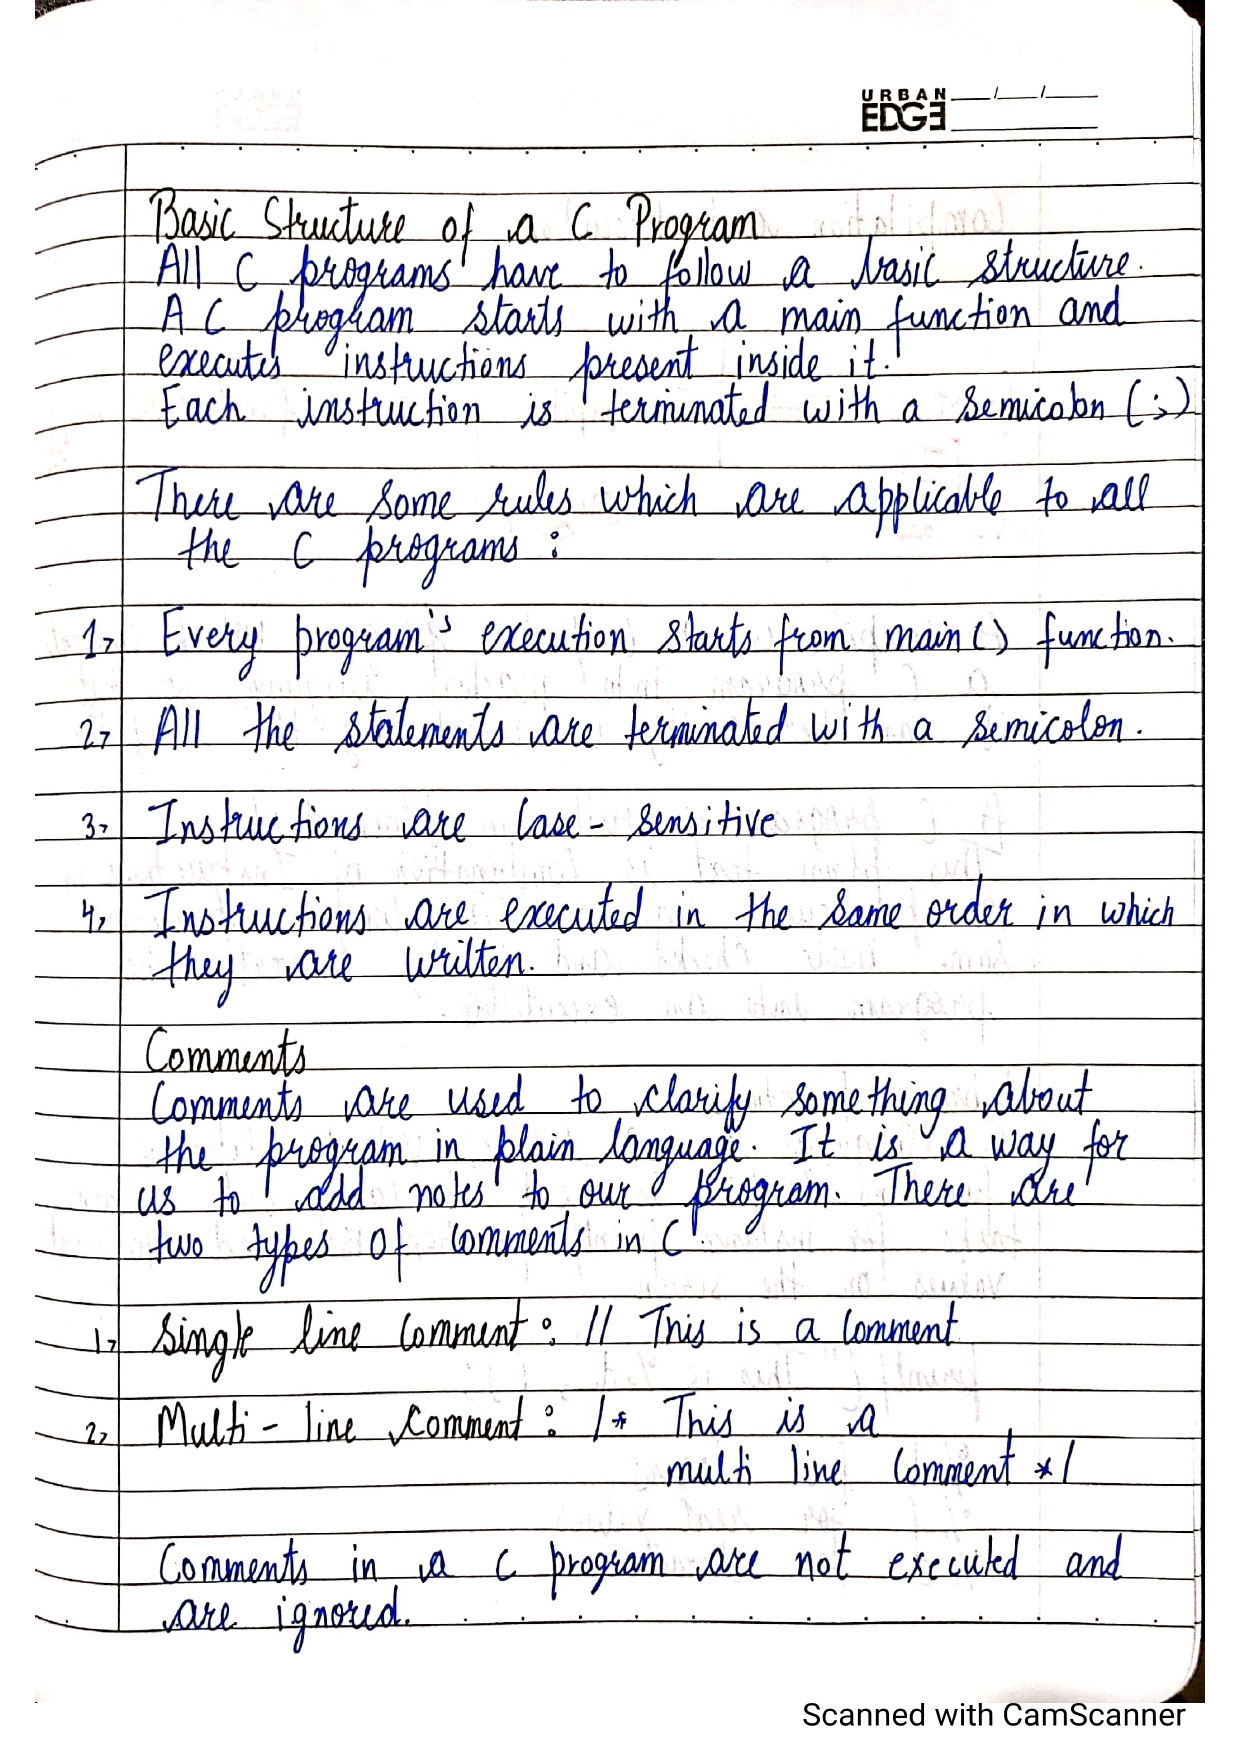 URBAN
EDGE
Basic Structure of a C Program
All C programs have to follow a basic structure.
A C program starts with a main function and
executes instructions present inside it.
Each instruction is terminated with a semicolon (;)
There are some rules which are applicable to all
the C programs :
1> Every program's execution starts from main() function.
2> All the statements are terminated with a semicolon.
3> Instructions are Case - sensitive
4> Instructions are executed in the same order in which
they are written.
Comments
Comments are used to clarify something about
the program in plain language. It is a way for
us to add notes to our program. There are
two types of comments in C.
1> Single line Comment : // This is a Comment
2> Multi - line Comment : /* This is a
multi line Comment */
Comments in a C program are not executed and
are ignored.
Scanned with CamScanner